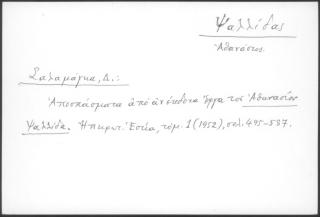 Ψαλλίδας
Ἀθανάσιος.
Σαλαμάγκα, Δ.:
Ἀποσπάσματα ἀπὸ ἀνέκδοτα ἔργα τοῦ Ἀθανασίου
Ψαλλίδα. Ἠπειρωτ. Ἑστία, τόμ. 1 (1952), σελ. 495-537.